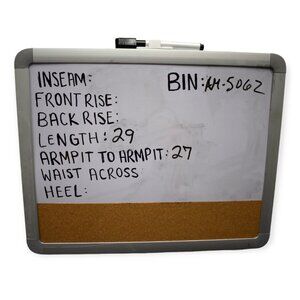 INSEAM:
BIN: HM-5062
FRONT RISE:
BACK RISE:
LENGTH: 29
ARMPIT TO ARMPIT: 27
WAIST ACROSS
HEEL: